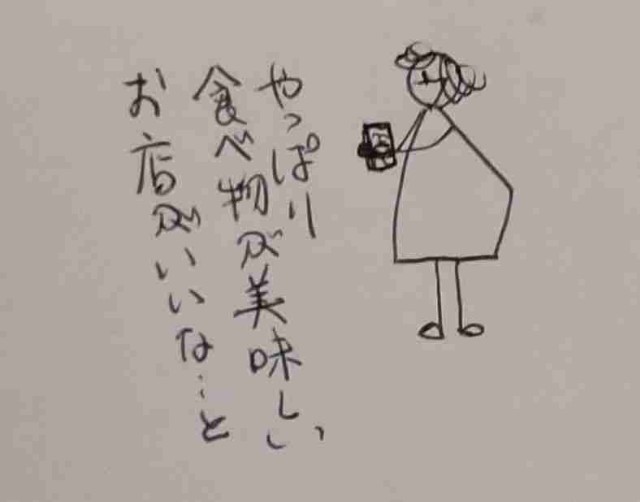 やっぱり
食べ物が美味しい
お店がいいな…と